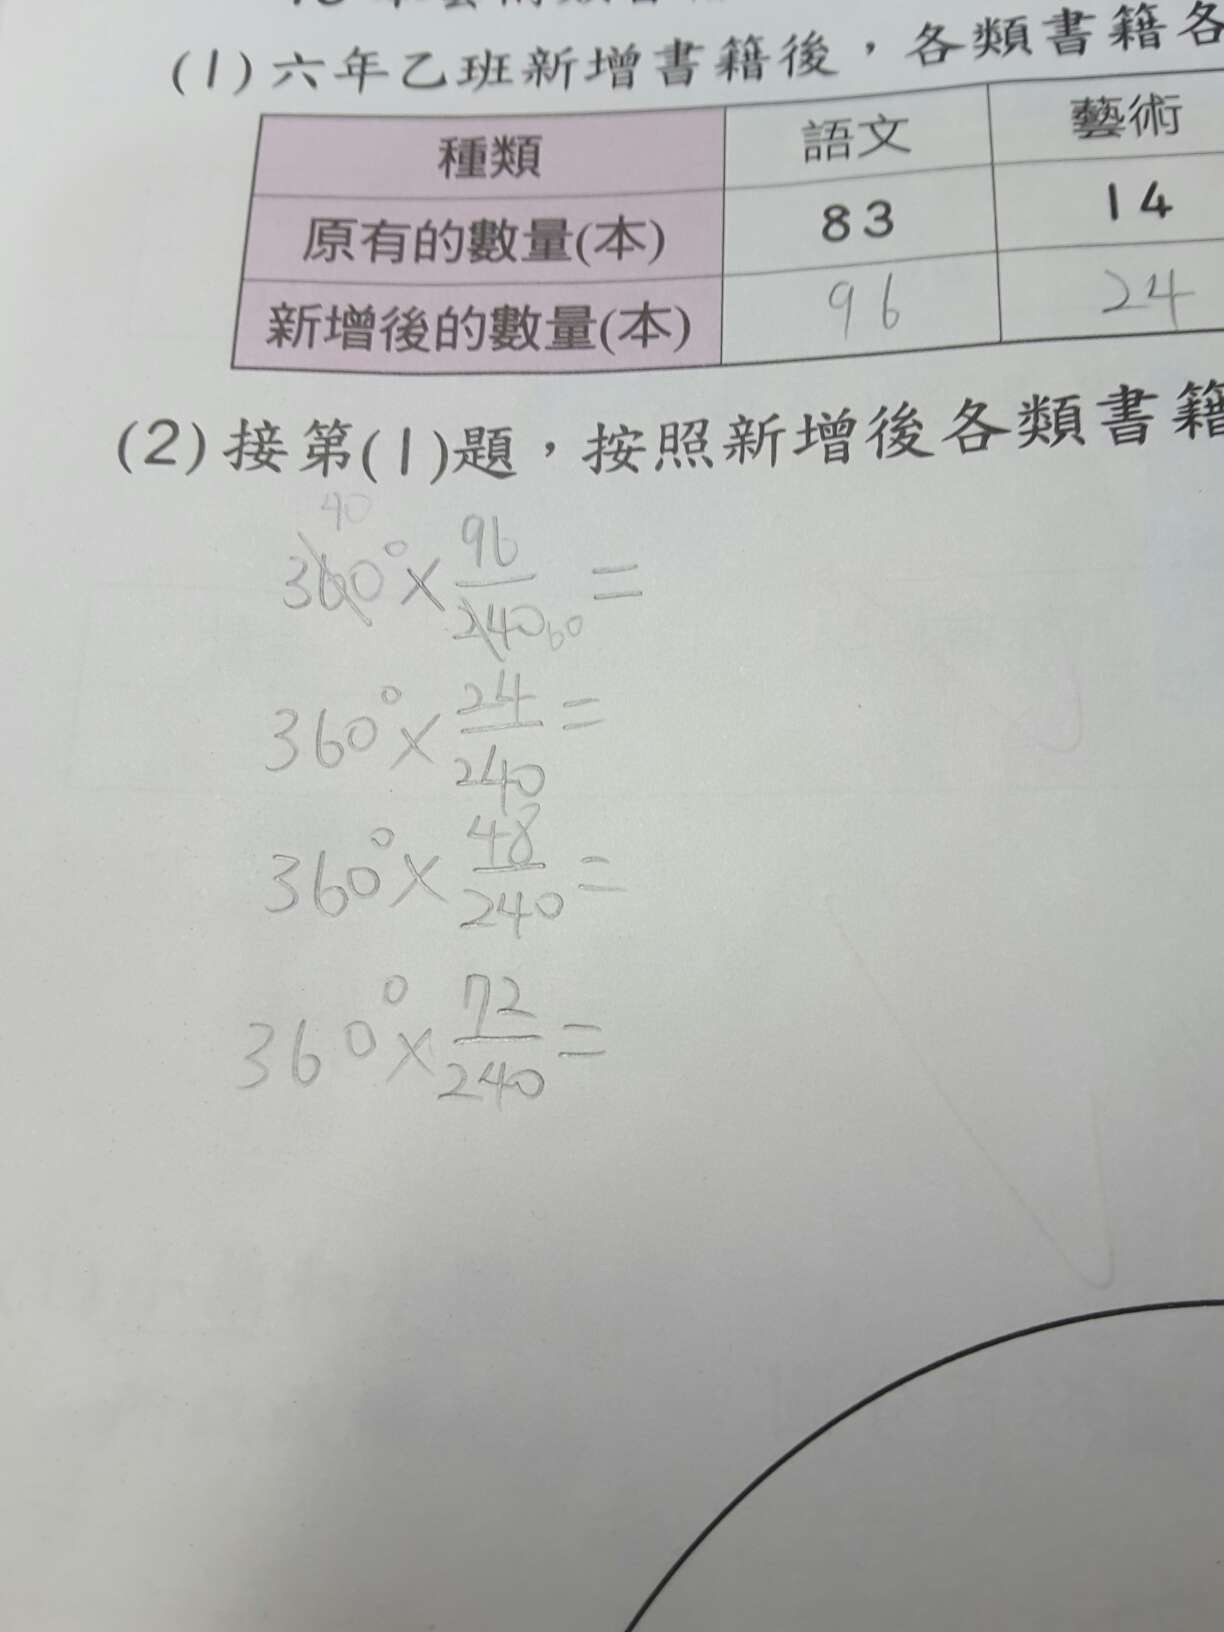 (1)六年乙班新增書籍後，各類書籍各
種類 語文 藝術
原有的數量(本) 83 14
新增後的數量(本) 96 24
(2)接第(1)題，按照新增後各類書籍
40
360°×96/240 60 =
360°×24/240=
360°×48/240=
360°×72/240=